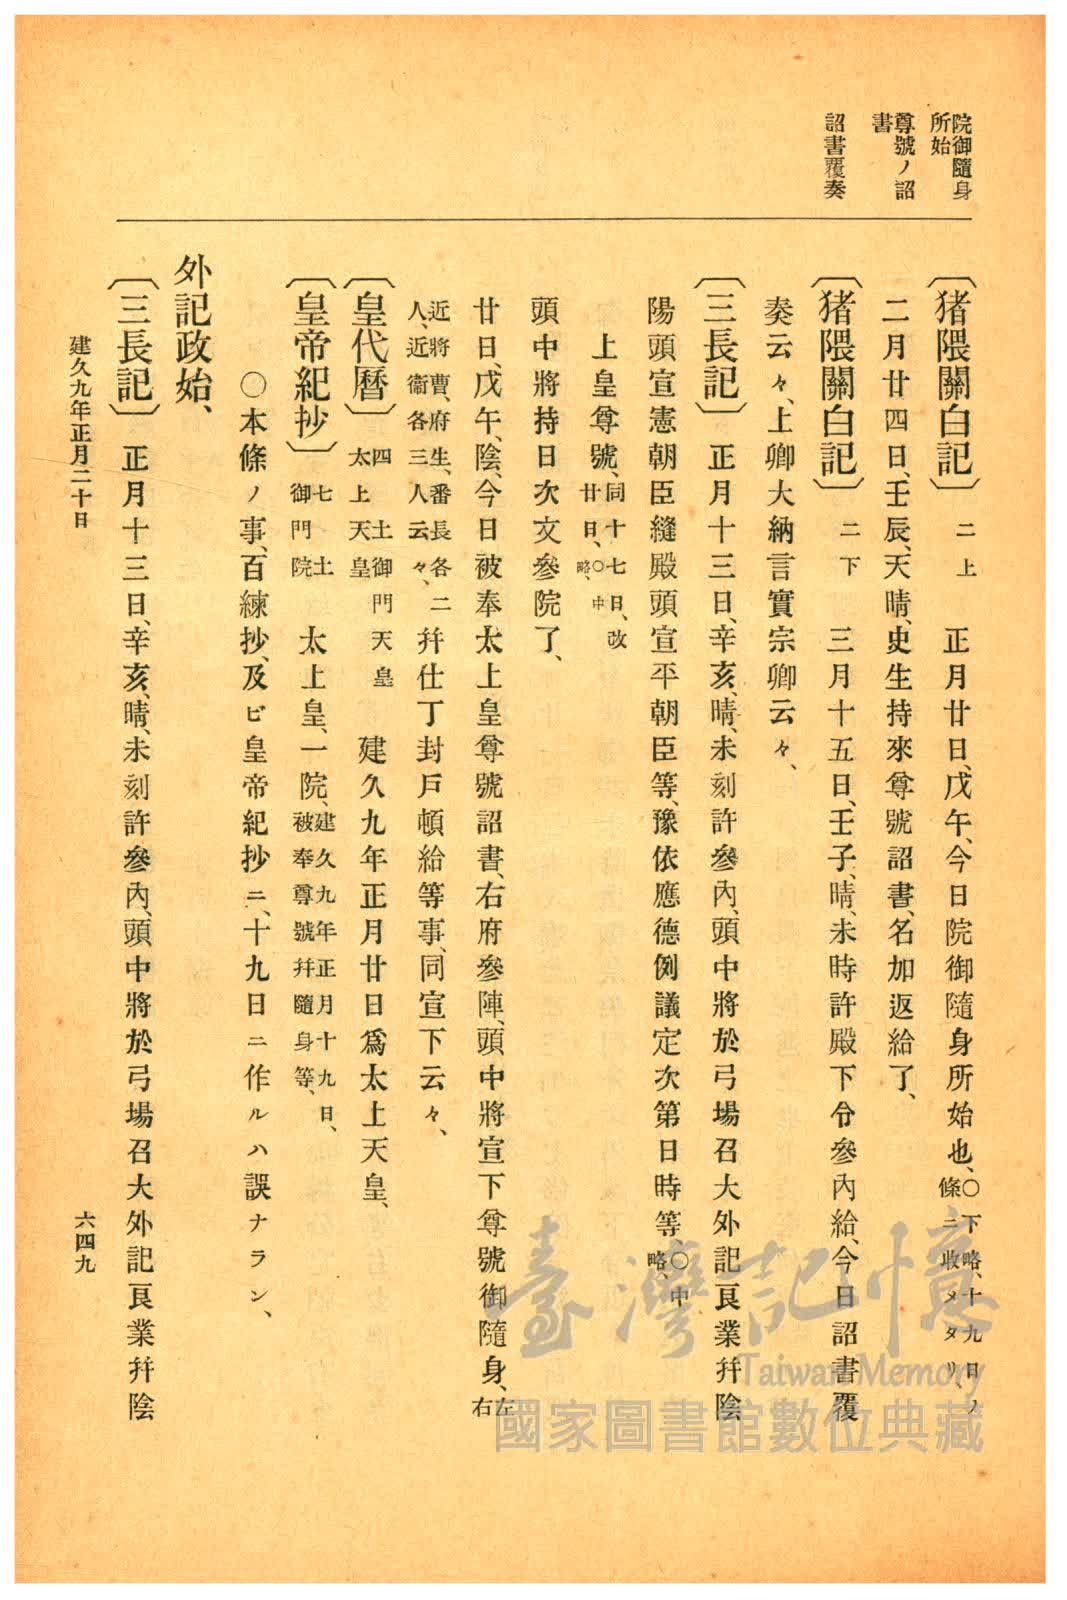 院御隨身
所始
尊號ノ詔
書
詔書覆奏
〔猪隈關白記〕二上 正月廿日、戊午、今日院御隨身所始也、〇下略、十九日ノ條ニ收メタリ、
二月廿四日、壬辰、天晴、史生持來尊號詔書、名加返給了、
〔猪隈關白記〕二下 三月十五日、壬子、晴、未時許殿下令參內給、今日詔書覆
奏云々、上卿大納言實宗卿云々、
〔三長記〕正月十三日、辛亥、晴、未刻許參內、頭中將於弓場召大外記良業幷陰
陽頭宣憲朝臣縫殿頭宣平朝臣等、豫依應德例議定次第日時等〇中略、
上皇尊號、同十七日、改廿日、〇中略、
頭中將持日次文參院了、
廿日、戊午、陰、今日被奉太上皇尊號詔書、右府參陣、頭中將宣下尊號御隨身、左右
近將曹、府生、番長各二人、近衞各三人云々、幷仕丁封戶頓給等事、同宣下云々、
〔皇代曆〕四 土御門天皇 太上天皇 建久九年正月廿日爲太上天皇、
〔皇帝紀抄〕七 土御門院 太上皇、一院、建久九年正月十九日、被奉尊號幷隨身等、
〇本條ノ事、百練抄、及ビ皇帝紀抄ニ、十九日ニ作ルハ誤ナラン、
外記政始、
〔三長記〕正月十三日、辛亥、晴、未刻許參內、頭中將於弓場召大外記良業幷陰
建久九年正月二十日
六四九
臺灣記憶
Taiwan Memory
國家圖書館數位典藏